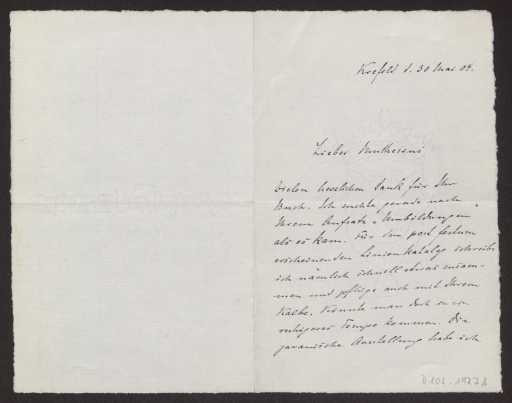 Krefeld d. 30 Mai 04.
Lieber Muthesius
Vielen herzlichen Dank für Ihr
Buch. Ich suchte gerade nach
Ihrem Aufsatz „Umbildungen"
als es kam. Für den
erscheinenden Linienkatalog schreibe
ich nämlich schnell etwas zusam-
men und pflüge auch mit Ihrem
Kalbe. Könnte man doch zu
ruhigerer Tempo kommen. Die
japanische Ausstellung habe ich
D 102 - 1977 b